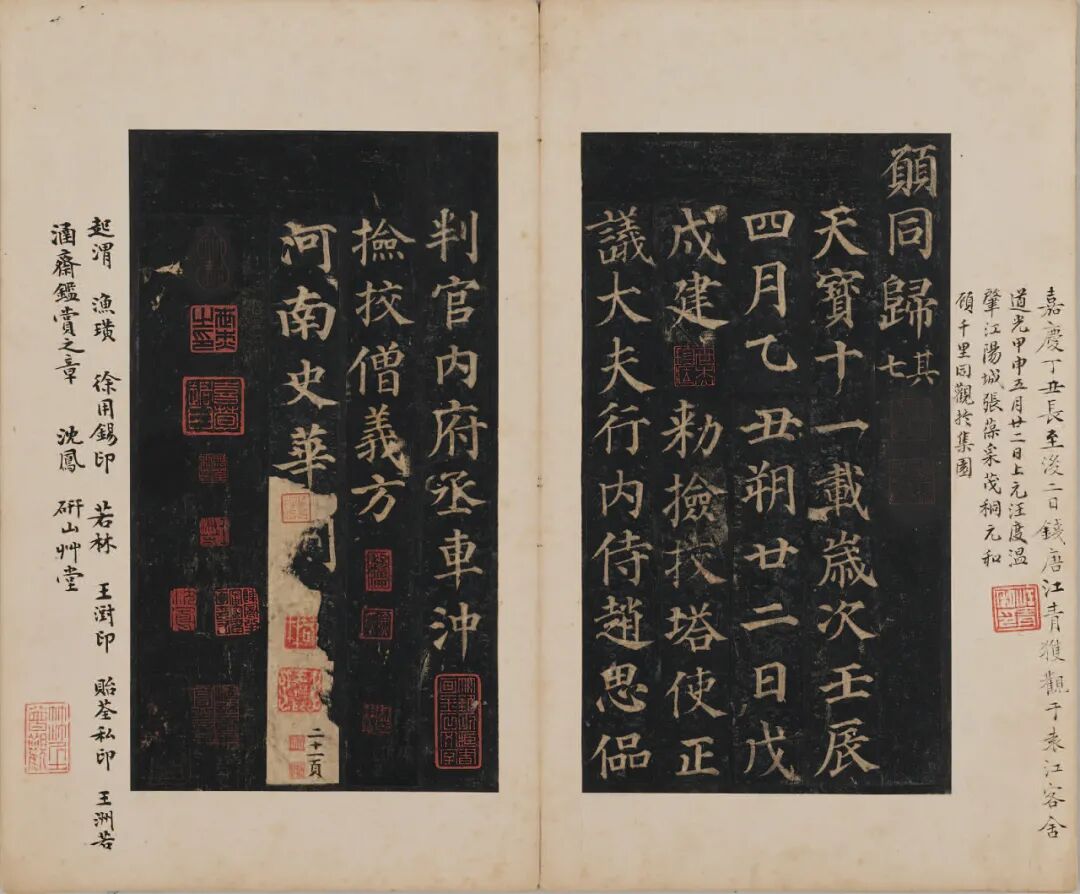 嘉慶丁丑長至後二日錢唐江青獲觀于袁江客舍
道光甲申五月廿二日上元汪度溫
肇江陽城張葆采茂桐元和
顧千里同觀於集園
願同歸其七
天寶十一載歲次壬辰
四月乙丑朔廿二日戊
戌建 勅撿挍塔使正
議大夫行内侍趙思偘
判官内府丞車沖
撿挍僧義方
河南史華刻
二十一頁
起渭 漁璜 徐用錫印 若林 王澍印 貽荃私印 王洲若
涵齋鑑賞之章 沈鳳 研山艸堂